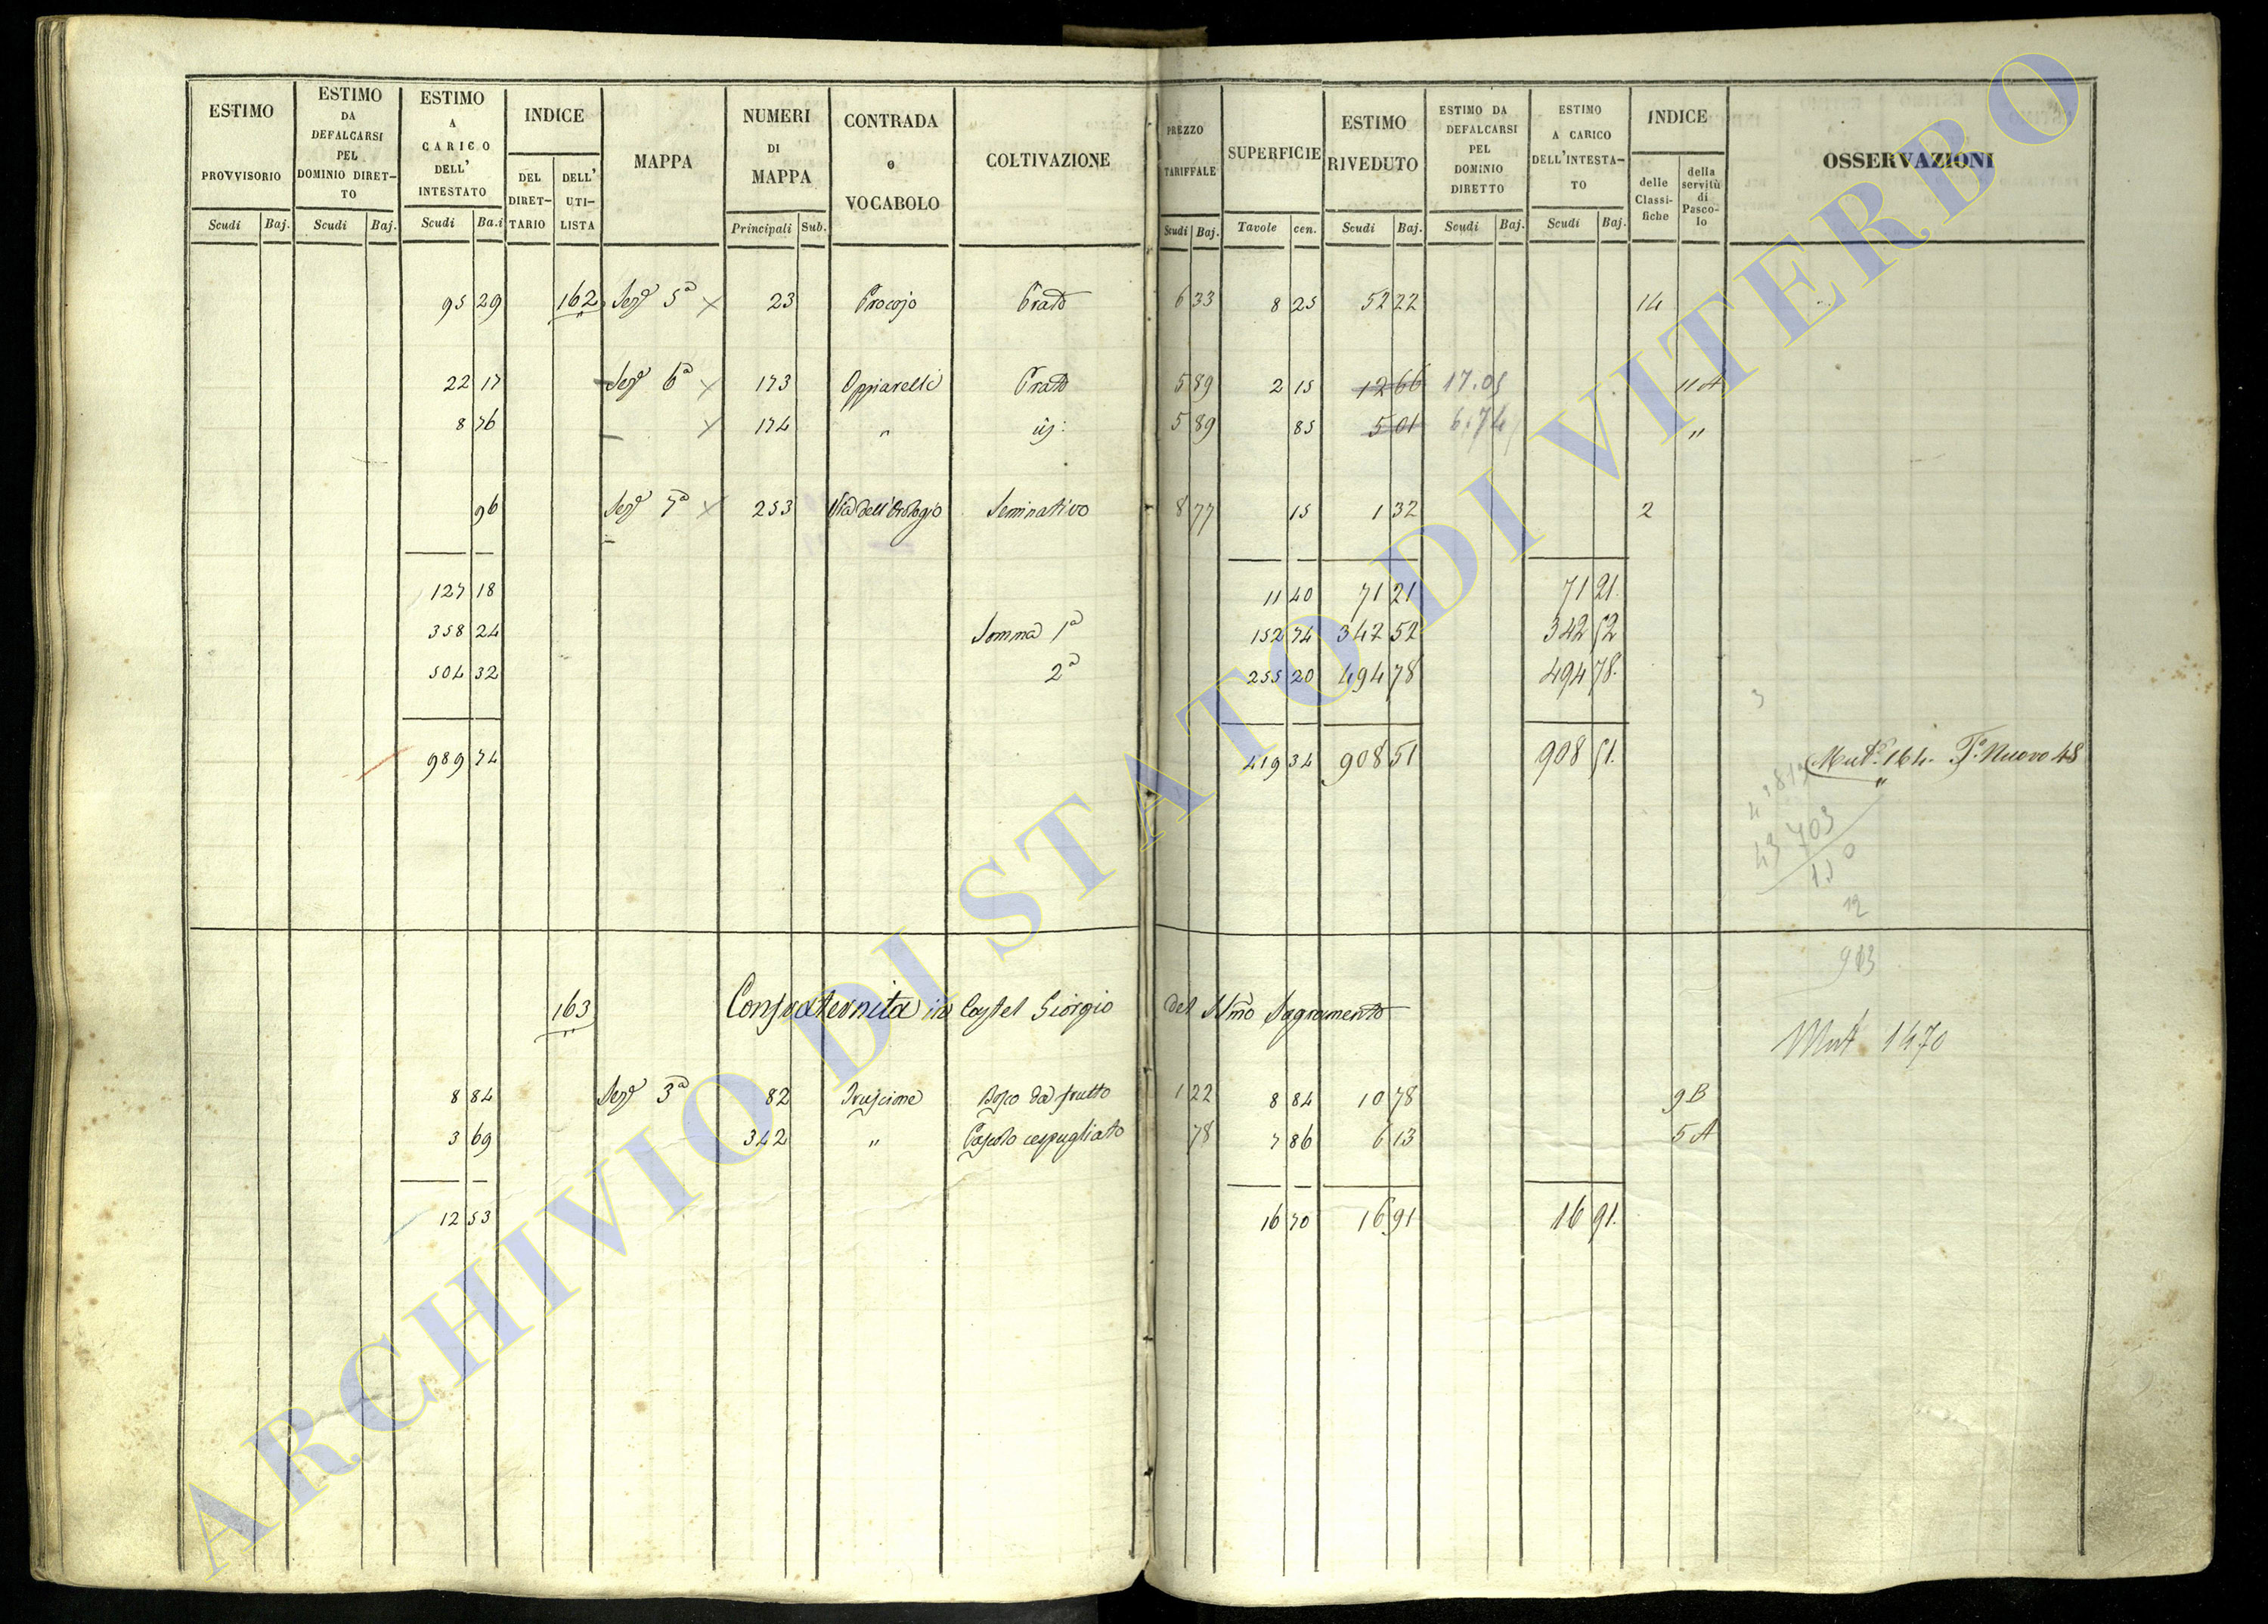 ESTIMO PROVVISORIO | ESTIMO DA DEFALCARSI PEL DOMINIO DIRETTO | ESTIMO A CARICO DELL' INTESTATO | INDICE DEL DIRETTARIO | DELL' UTILISTA | MAPPA | NUMERI DI MAPPA | CONTRADA o VOCABOLO | COLTIVAZIONE | PREZZO TARIFFALE | SUPERFICIE | ESTIMO RIVEDUTO | ESTIMO DA DEFALCARSI PEL DOMINIO DIRETTO | ESTIMO A CARICO DELL'INTESTATO | INDICE delle Classifiche | della servitù di Pascolo | OSSERVAZIONI
Scudi | Baj. | Scudi | Baj. | Scudi | Ba.i | Principali | Sub. | Scudi | Baj. | Tavole | cen. | Scudi | Baj. | Scudi | Baj. | Scudi | Baj.
95 29 | 162 | Sezᵉ 5ª × | 23 | Procojo | Prato | 6 33 | 8 25 | 52 22 | 14
22 17 | Sezᵉ 6ª × | 173 | Oppiarelli | Prato | 5 89 | 2 15 | 12 66 | 17.05 | 11 A
8 76 | × | 174 | " | 5 89 | 85 | 5 01 | 6.74 | "
96 | Sezᵉ 7ª × | 253 | Via dell'Orologio | Seminativo | 8 77 | 15 | 1 32 | 2
127 18 | 11 40 | 71 21 | 71 21.
358 24 | Somma 1ª | 152 74 | 342 52 | 342 52
504 32 | 2ª | 255 20 | 494 78 | 494 78.
989 74 | 419 34 | 908 51 | 908 51. | Mutª 164. Tº Nuovo 48
43 703
12
983
163 | Confraternita in Castel Giorgio del SSmo Sagramento
Mut 1470
8 84 | Sezᵉ 3ª | 82 | Bosco da frutto | 1 22 | 8 84 | 10 78 | 9 B
3 69 | 342 | " | Pascolo cespugliato | 78 | 7 86 | 6 13 | 5 A
12 53 | 16 70 | 16 91 | 16 91.
ARCHIVIO DI STATO DI VITERBO